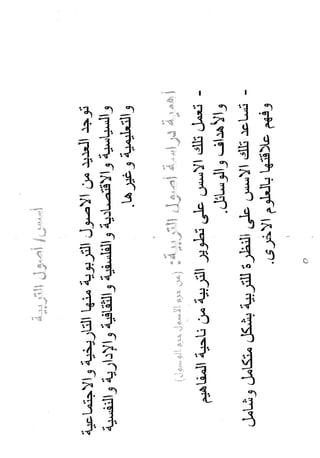 أسس/ أصول التربية
توجد العديد من الاصول التربوية منها التاريخية والاجتماعية
والسياسية والاقتصادية والفلسفية والثقافية والإدارية والنفسية
والتعليمية وغيرها.
أهمية دراسة أصول التربية: (من حرم الاصول حرم الوصول)
- تعمل تلك الاسس على تطوير التربية من ناحية المفاهيم
والأهداف والوسائل.
- تساعد تلك الاسس على النظرة للتربية بشكل متكامل وشامل
وفهم علاقتها بالعلوم الاخرى.